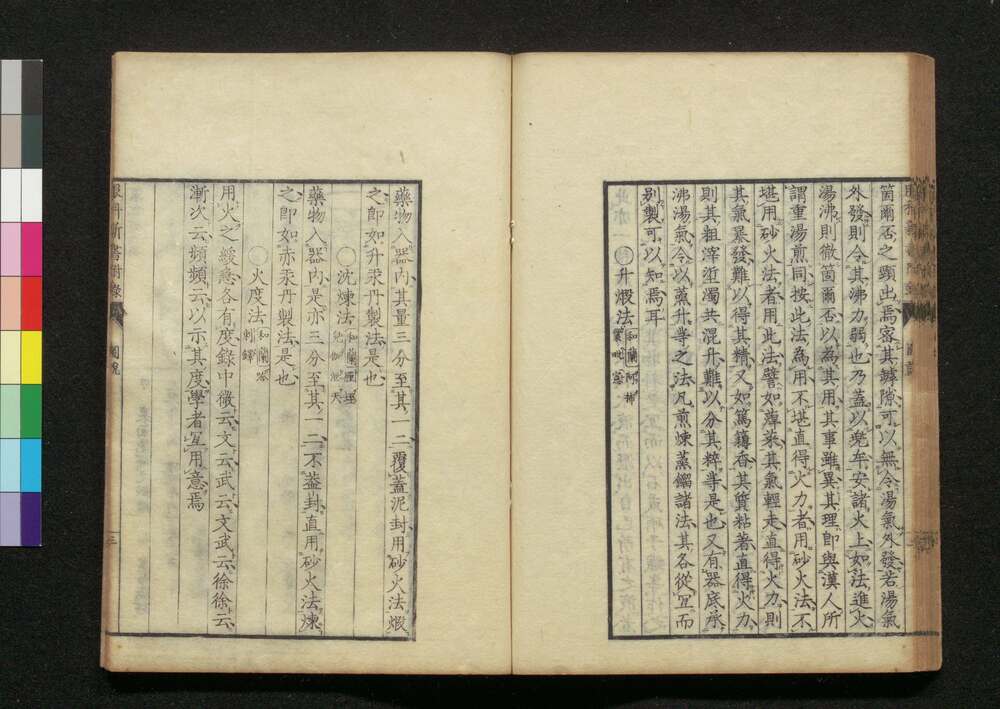 箇爾否之頸出焉密其罅隙可以無令湯氣外發若湯氣
外發則令其沸力弱也乃蓋以兠牟安諸火上如法進火
湯沸則徹箇爾否以為其用其事雖異其理即與漢人所
謂重湯煎同按此法為用不堪直得火力者用砂火法不
堪用砂火法者用此法譬如薄荷其氣輕走直得火力則
其氣暴發難以得其精又如篤耨香其質粘著直得火力
則其粗滓逝濁共混升難以分其粹等是也又有器底承
沸湯氣令以薰升等之法凡煎煉蒸鎦諸法其各從宜而
別製可以知焉耳
○升煅法
藥物入器內其量三分至其一二覆蓋泥封用砂火法煅
之即如升汞丹製法是也
○沈煉法
藥物入器內是亦三分至其一二不蓋封直用砂火法煉
之即如赤汞丹製法是也
○火度法
用火之緩急各有度錄中微云文云武云文武云徐徐云
漸次云頻頻云以示其度學者宜用意焉
眼科新書附錄 圖說 三